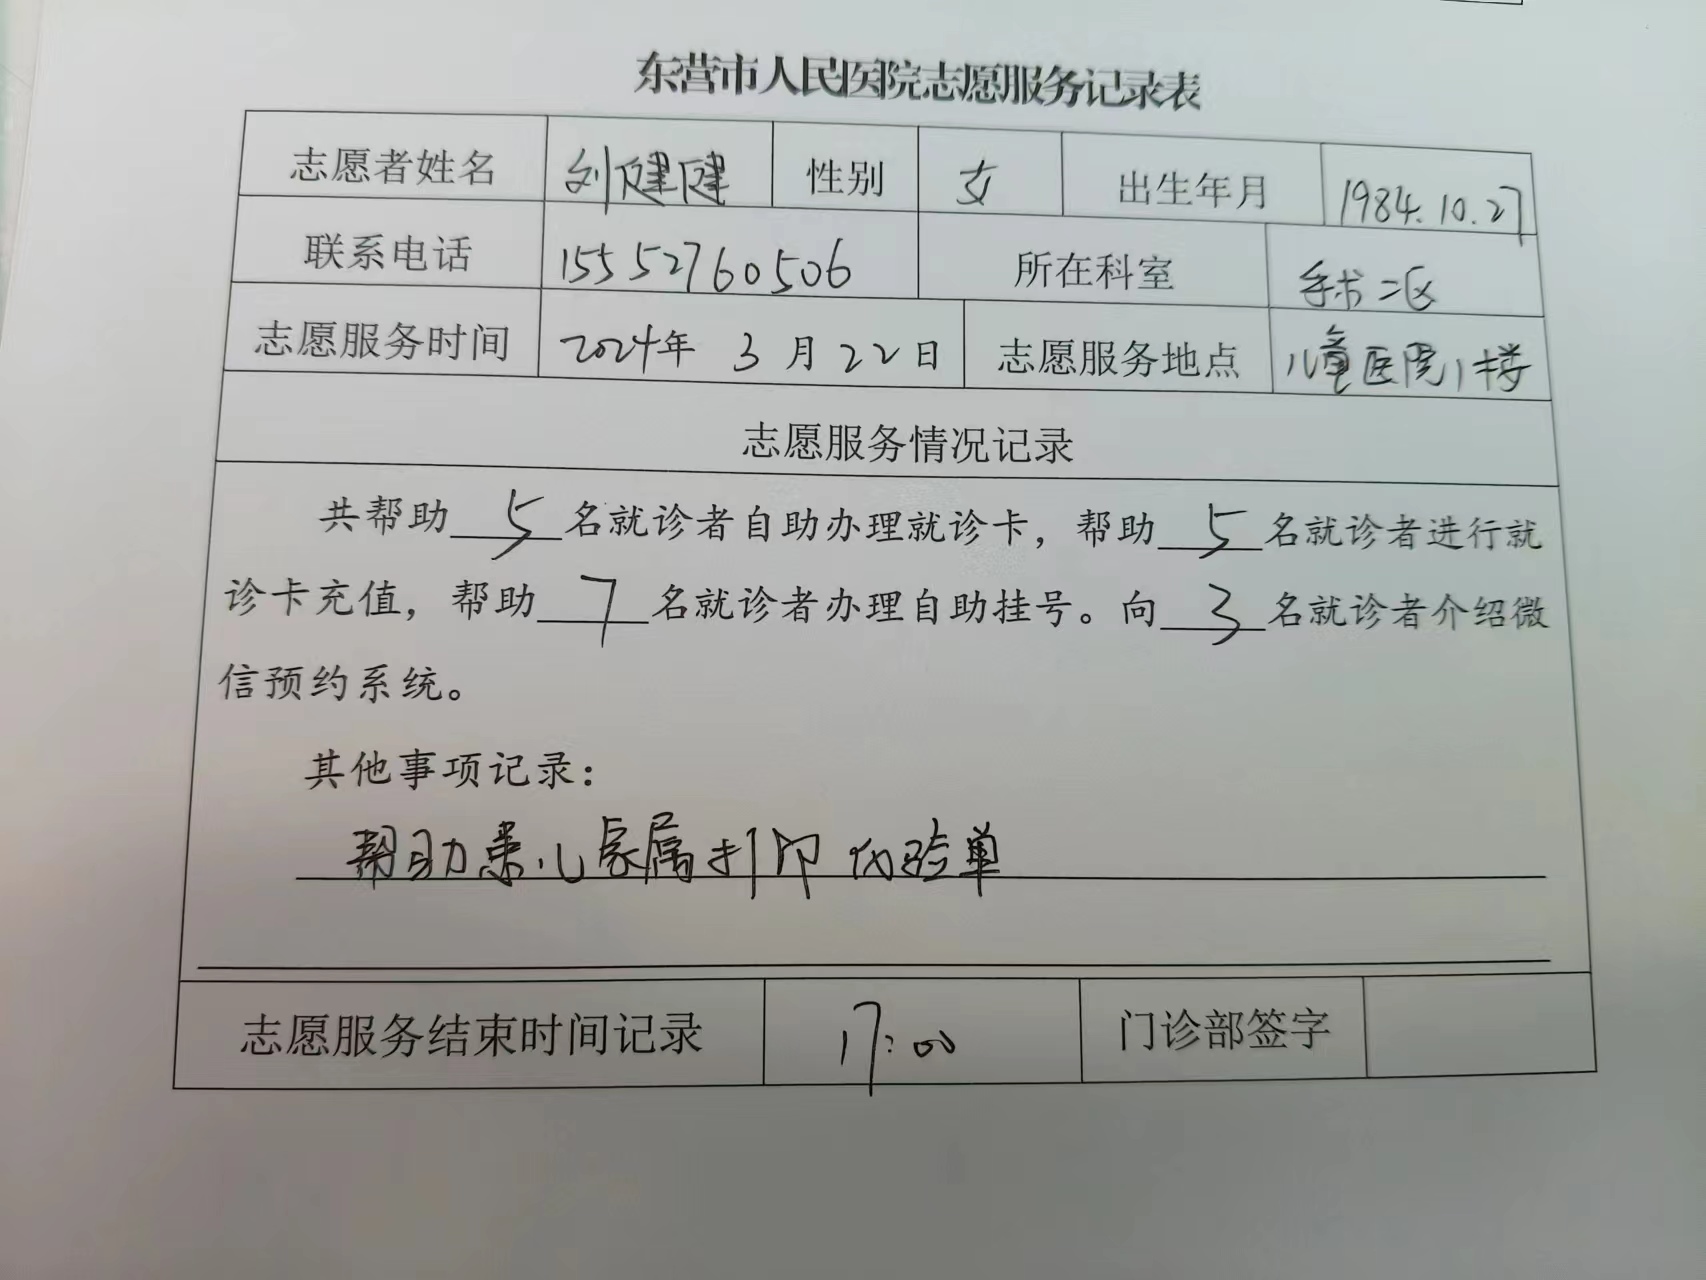 东营市人民医院志愿服务记录表
志愿者姓名 刘健健 性别 女 出生年月 1984.10.27
联系电话 15552760506 所在科室 手术二区
志愿服务时间 2024年 3 月 22 日 志愿服务地点 儿童医院1楼
志愿服务情况记录
共帮助 5 名就诊者自助办理就诊卡，帮助 5 名就诊者进行就
诊卡充值，帮助 7 名就诊者办理自助挂号。向 3 名就诊者介绍微
信预约系统。
其他事项记录：
帮助患儿家属打印化验单
志愿服务结束时间记录 17:00 门诊部签字